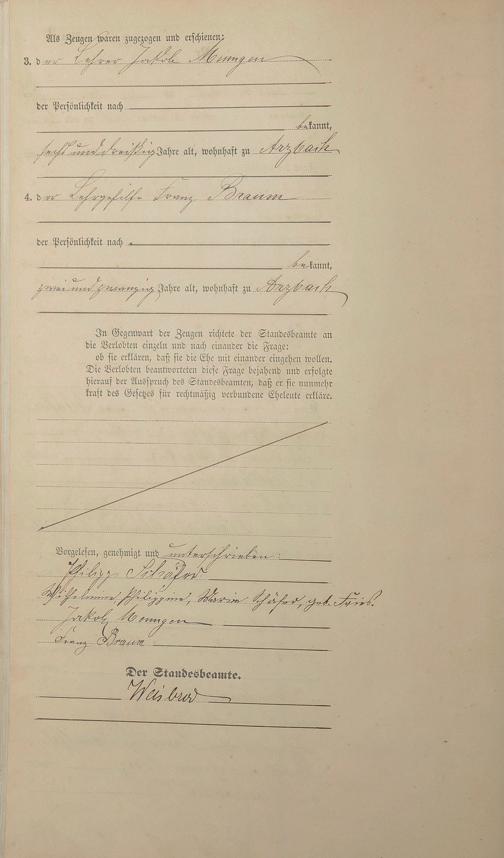 Als Zeugen waren zugezogen und erschienen:
3. der Lehrer Jakob Menngen
der Persönlichkeit nach
bekannt,
sechsunddreißig Jahre alt, wohnhaft zu Arzbach
4. der Lehrgehilfe Franz Braum
der Persönlichkeit nach
bekannt,
zweiundzwanzig Jahre alt, wohnhaft zu Arzbach
In Gegenwart der Zeugen richtete der Standesbeamte an
die Verlobten einzeln und nach einander die Frage:
ob sie erklären, daß sie die Ehe mit einander eingehen wollen.
Die Verlobten beantworteten diese Frage bejahend und erfolgte
hierauf der Ausspruch des Standesbeamten, daß er sie nunmehr
kraft des Gesetzes für rechtmäßig verbundene Eheleute erkläre.
Vorgelesen, genehmigt und unterschrieben:
Philipp Schäfer
Wilhelmine, Philippine, Maria Schäfer, geb. Fries.
Jakob Menngen
Franz Braum
Der Standesbeamte.
Weisbrod